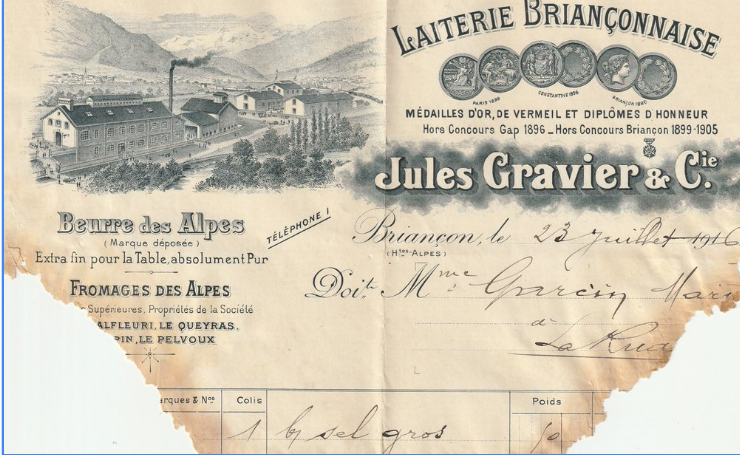 LAITERIE BRIANÇONNAISE
PARIS 1896
CONSTANTINE 1896
BRIANÇON 1890
MÉDAILLES D'OR, DE VERMEIL ET DIPLÔMES D'HONNEUR
Hors Concours Gap 1896 _ Hors Concours Briançon 1899-1905
Jules Gravier & Cie.
Beurre des Alpes
(Marque déposée)
Extra fin pour la Table, absolument Pur
FROMAGES DES ALPES
Supérieures, Propriétés de la Société
ALFLEURI, LE QUEYRAS,
PIN, LE PELVOUX
TÉLÉPHONE 1
Briançon, le 23 juillet 1916
(Htes-ALPES)
Doit Mme Garcin Mari
à
La Rua
arques & Nos Colis Poids
1 sel gros